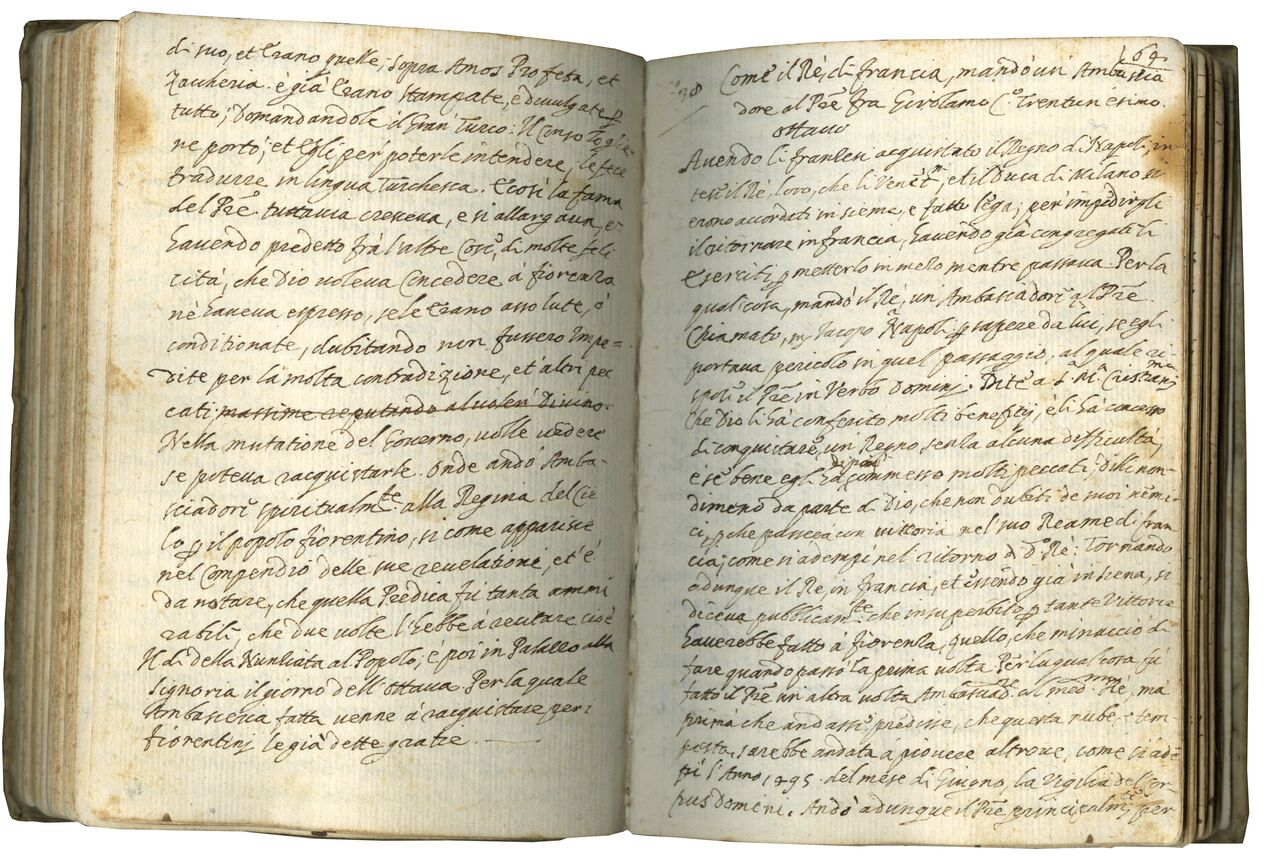 di suo, et erano quelle, sopra Amos Profeta, et
Zaccheria. e già erano stampate, e divulgate p
tutto; Domandandole il Gran Turco: Il
ne portò; et egli per poterle intendere, le fece
tradurre in lingua Turchesca. E così la fama
del Pre tuttavia cresceva, e si allargava, et
havendo predetto frà l'altre Cose, di molte feli
cità, che Dio voleva Concedere à fiorenza
nè haveva espresso, se le erano assolute, ò
conditionate, dubitando non fussero Impe=
dite per la molta contradizione, et altri pec
cati massime reputando al voler Divino.
Nella mutatione del Governo, volle vedere
se poteva racquistarle. Onde andò Amba-
sciadore spiritualmte alla Regina del Cie
lo p il popolo fiorentino, si come apparisce
nel Compendio delle sue revelatione, et è
da notare, che quella Predica fù tanta ammi
rabile, che due volte l'hebbe à recitare cioè
Il dì della Nuntiata al Popolo; e poi in Palazzo alla
Signoria il giorno dell'ottava. Per la quale
Ambasceria fatta venne à racquistare per i
fiorentini le già dette gratie.
164
38 Come il Rè, di francia, mandò un Ambascia
dore al Pre fra Girolamo Co Trentunesimo.
ottavo
Avendo li franzesi acquistato il Regno di Napoli, in-
tese il Rè, loro, che li Venetni, et il Duca di Milano si
erono accordati insieme, e fatto lega; per impedirgli
il ritornare in francia, havendo già congregati li
Eserciti p metterlo in mezo mentre passava. Per la
qual cosa, mandò il Rè, un' Ambasciadore al Pre
Chiamato, Iacopo Napoli p sapere da lui, se egli
portava pericolo in quel passaggio, al quale ri-
spose il Pre in Verbo Domini. Dite a Sa Ma Cristianima
Che Dio li hà conferito molti benefitij, e li hà concesso
di conquitare, un Regno senza alcuna difficultà,
e se bene egli hà commesso di poi molti peccati; dili non-
dimeno da parte di Dio, che non dubiti de suoi nemi-
ci, pche passerà con vittoria nel suo Reame di fran-
cia; come si adempì nel ritorno di do Rè: Tornando
adunque il Re, in francia, et essendo già in Siena, si
diceva pubblicamte: che insuperbito p tante Vittorie
haverebbe fatto à fiorenza, quello, che minacciò di
fare quando passò la prima volta. Per la qual cosa fù
fatto il Pre un' altra volta Ambasciadre al medmo Rè, mà
prima che andasse predisse, che questa nube, e tem-
pesta, sarebbe andata a piovere altrove, come si adè
pì l'Anno 1495 del mese di Giugno, la Vigilia del Cor-
pus domini. Andò adunque il Pre principalmte per